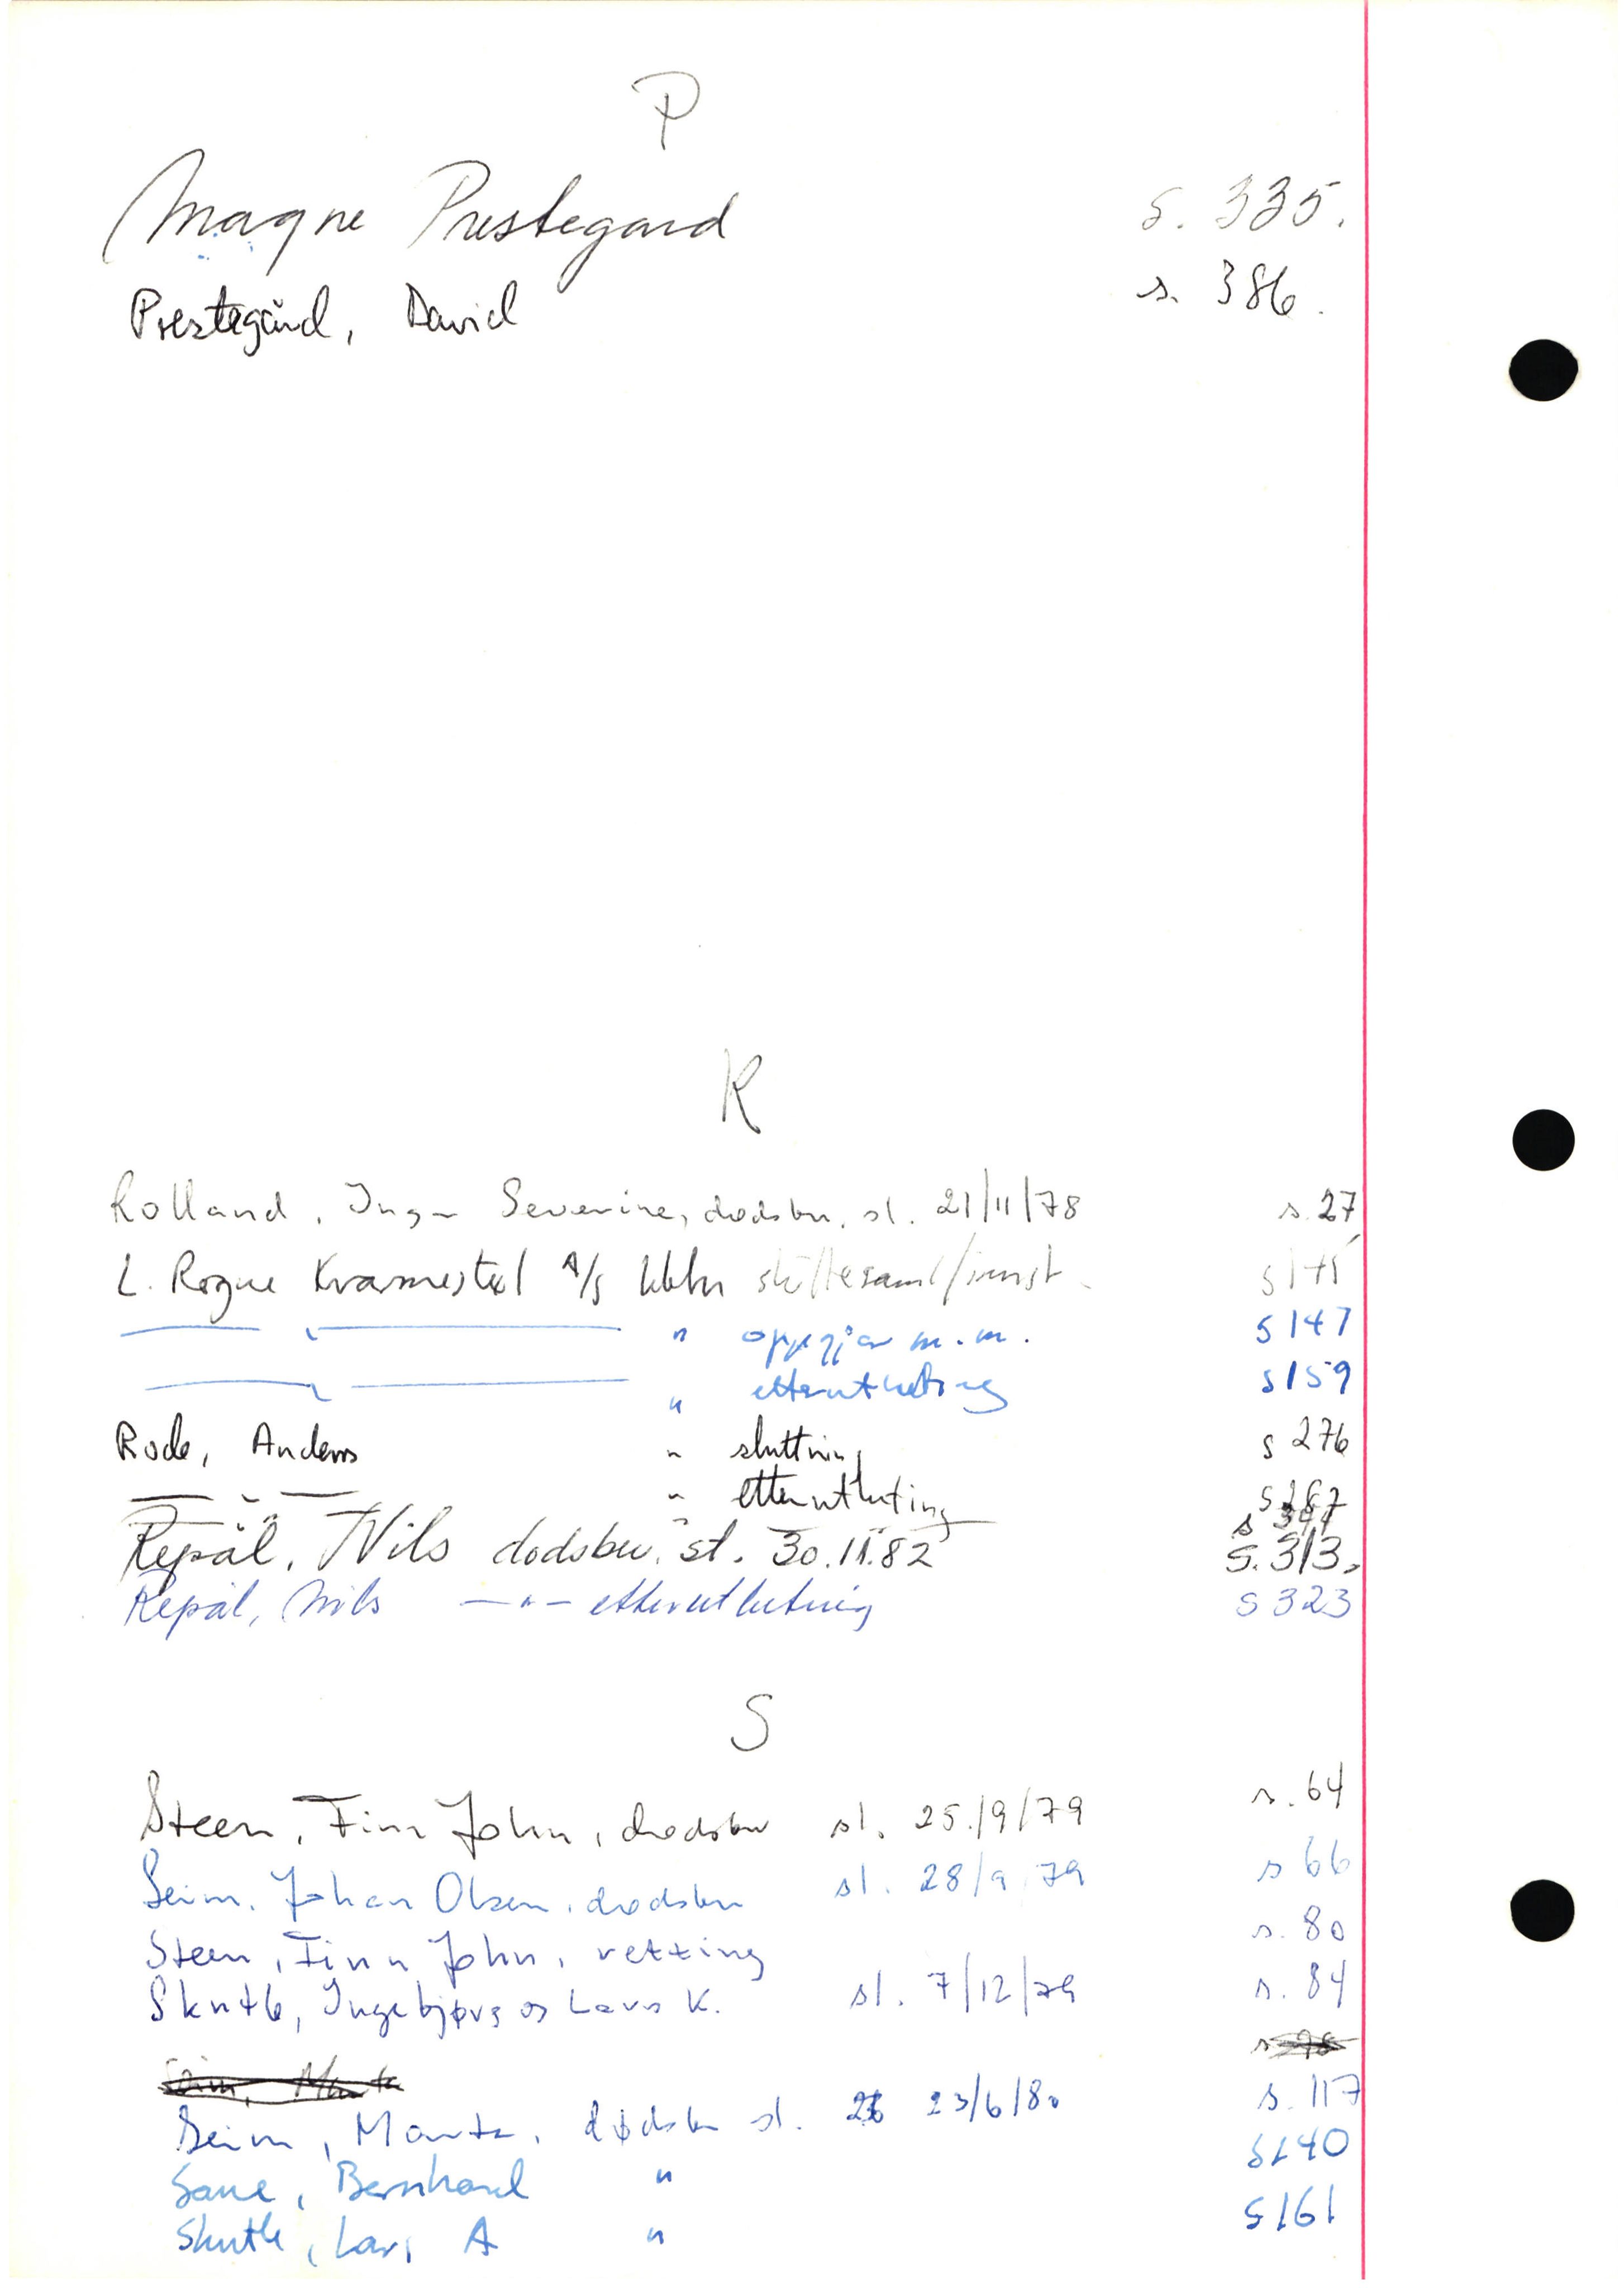 P
Magne Prestegard s. 335.
Prestegård, David s. 386.
R
Rolland, Inga Severine, dødsbu. sl. 21/11/78 s. 27
L. Rogne Kvarmestøl A/S skiftesaml/innst
— " — " oppgjør m.m. s 147
— " — " etterutluting s 159
Rode, Anders " sluttning s 276
— " — " etterutluting s 287
Repål, Nils dødsbu. sl. 30.11.82 s. 313.
Repål, Nils — " — etterutluting s 323
S
Steen, Finn John, dødsbu sl. 25./9/79 s. 64
Seim, Johan Olsen, dødsbu sl. 28/9 79 s 66
Steen, Finn John, retting s. 80
Skutle, Ingebjørg og Lars K. sl. 7/12/79 s. 84
Seim, Marta
Seim, Marta, dødsbu sl. 23/6/80 s. 117
Saue, Bernhard " s 140
Skutle, Lars A " s 161